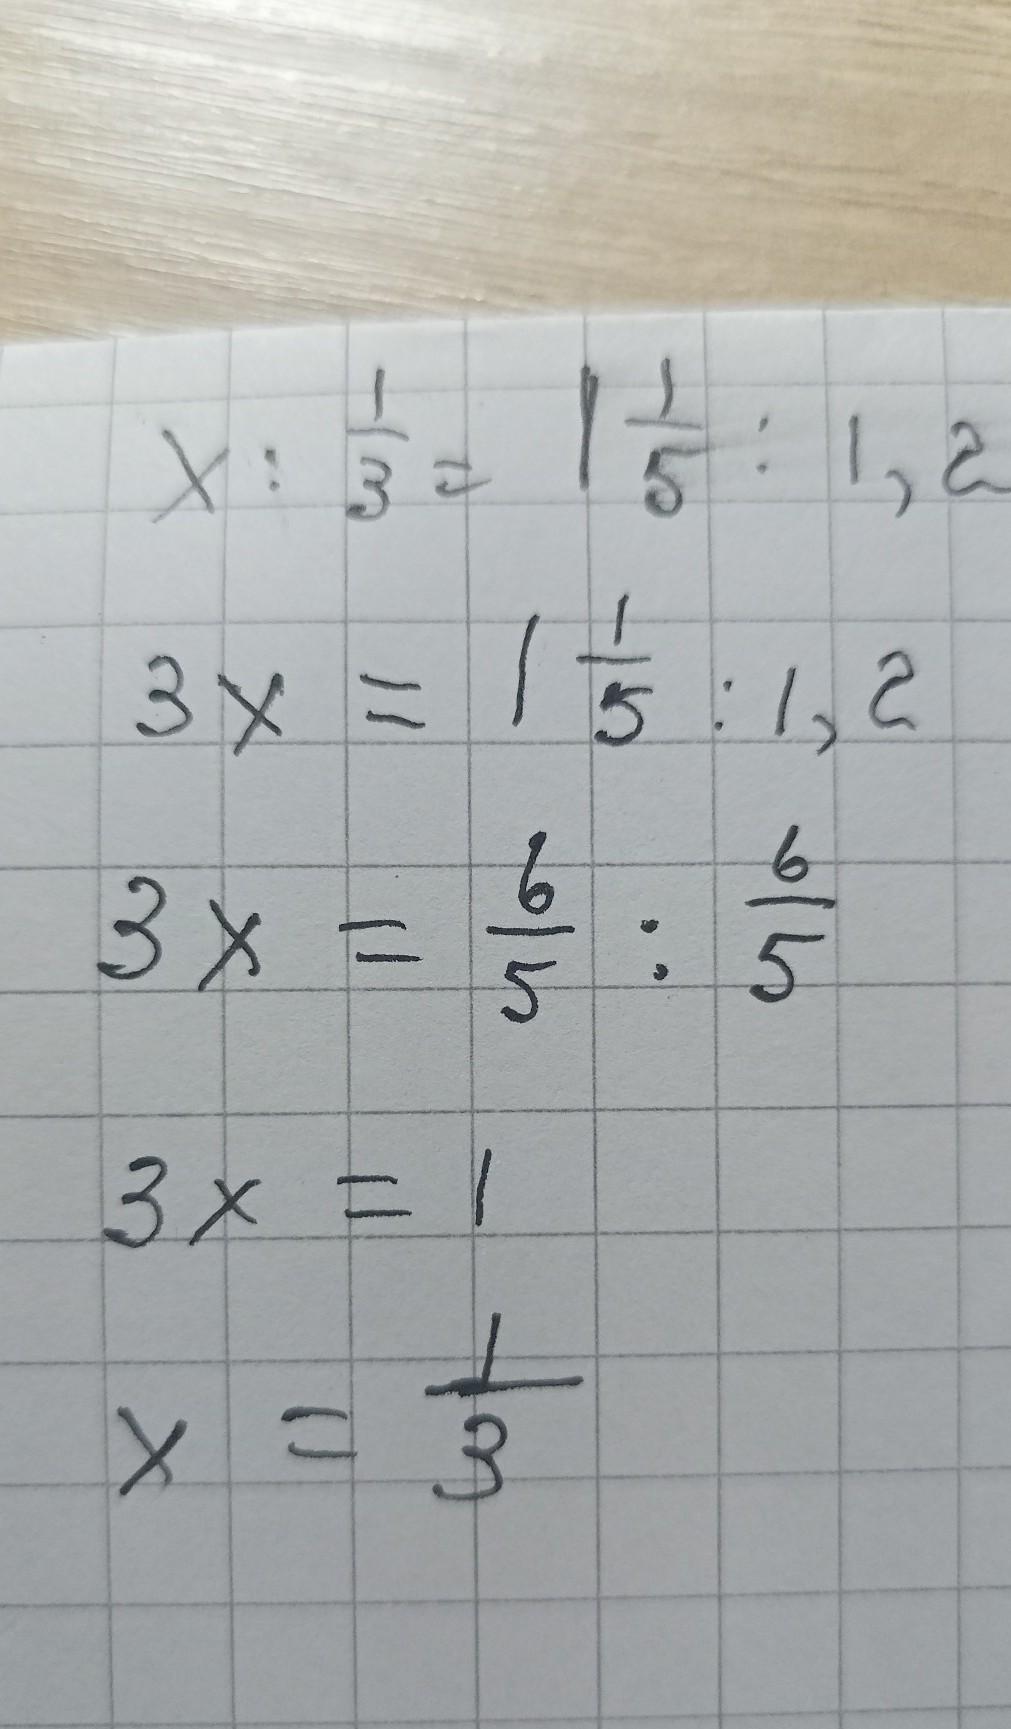 x : 1/3 = 1 1/5 : 1,2
3x = 1 1/5 : 1,2
3x = 6/5 : 6/5
3x = 1
x = 1/3